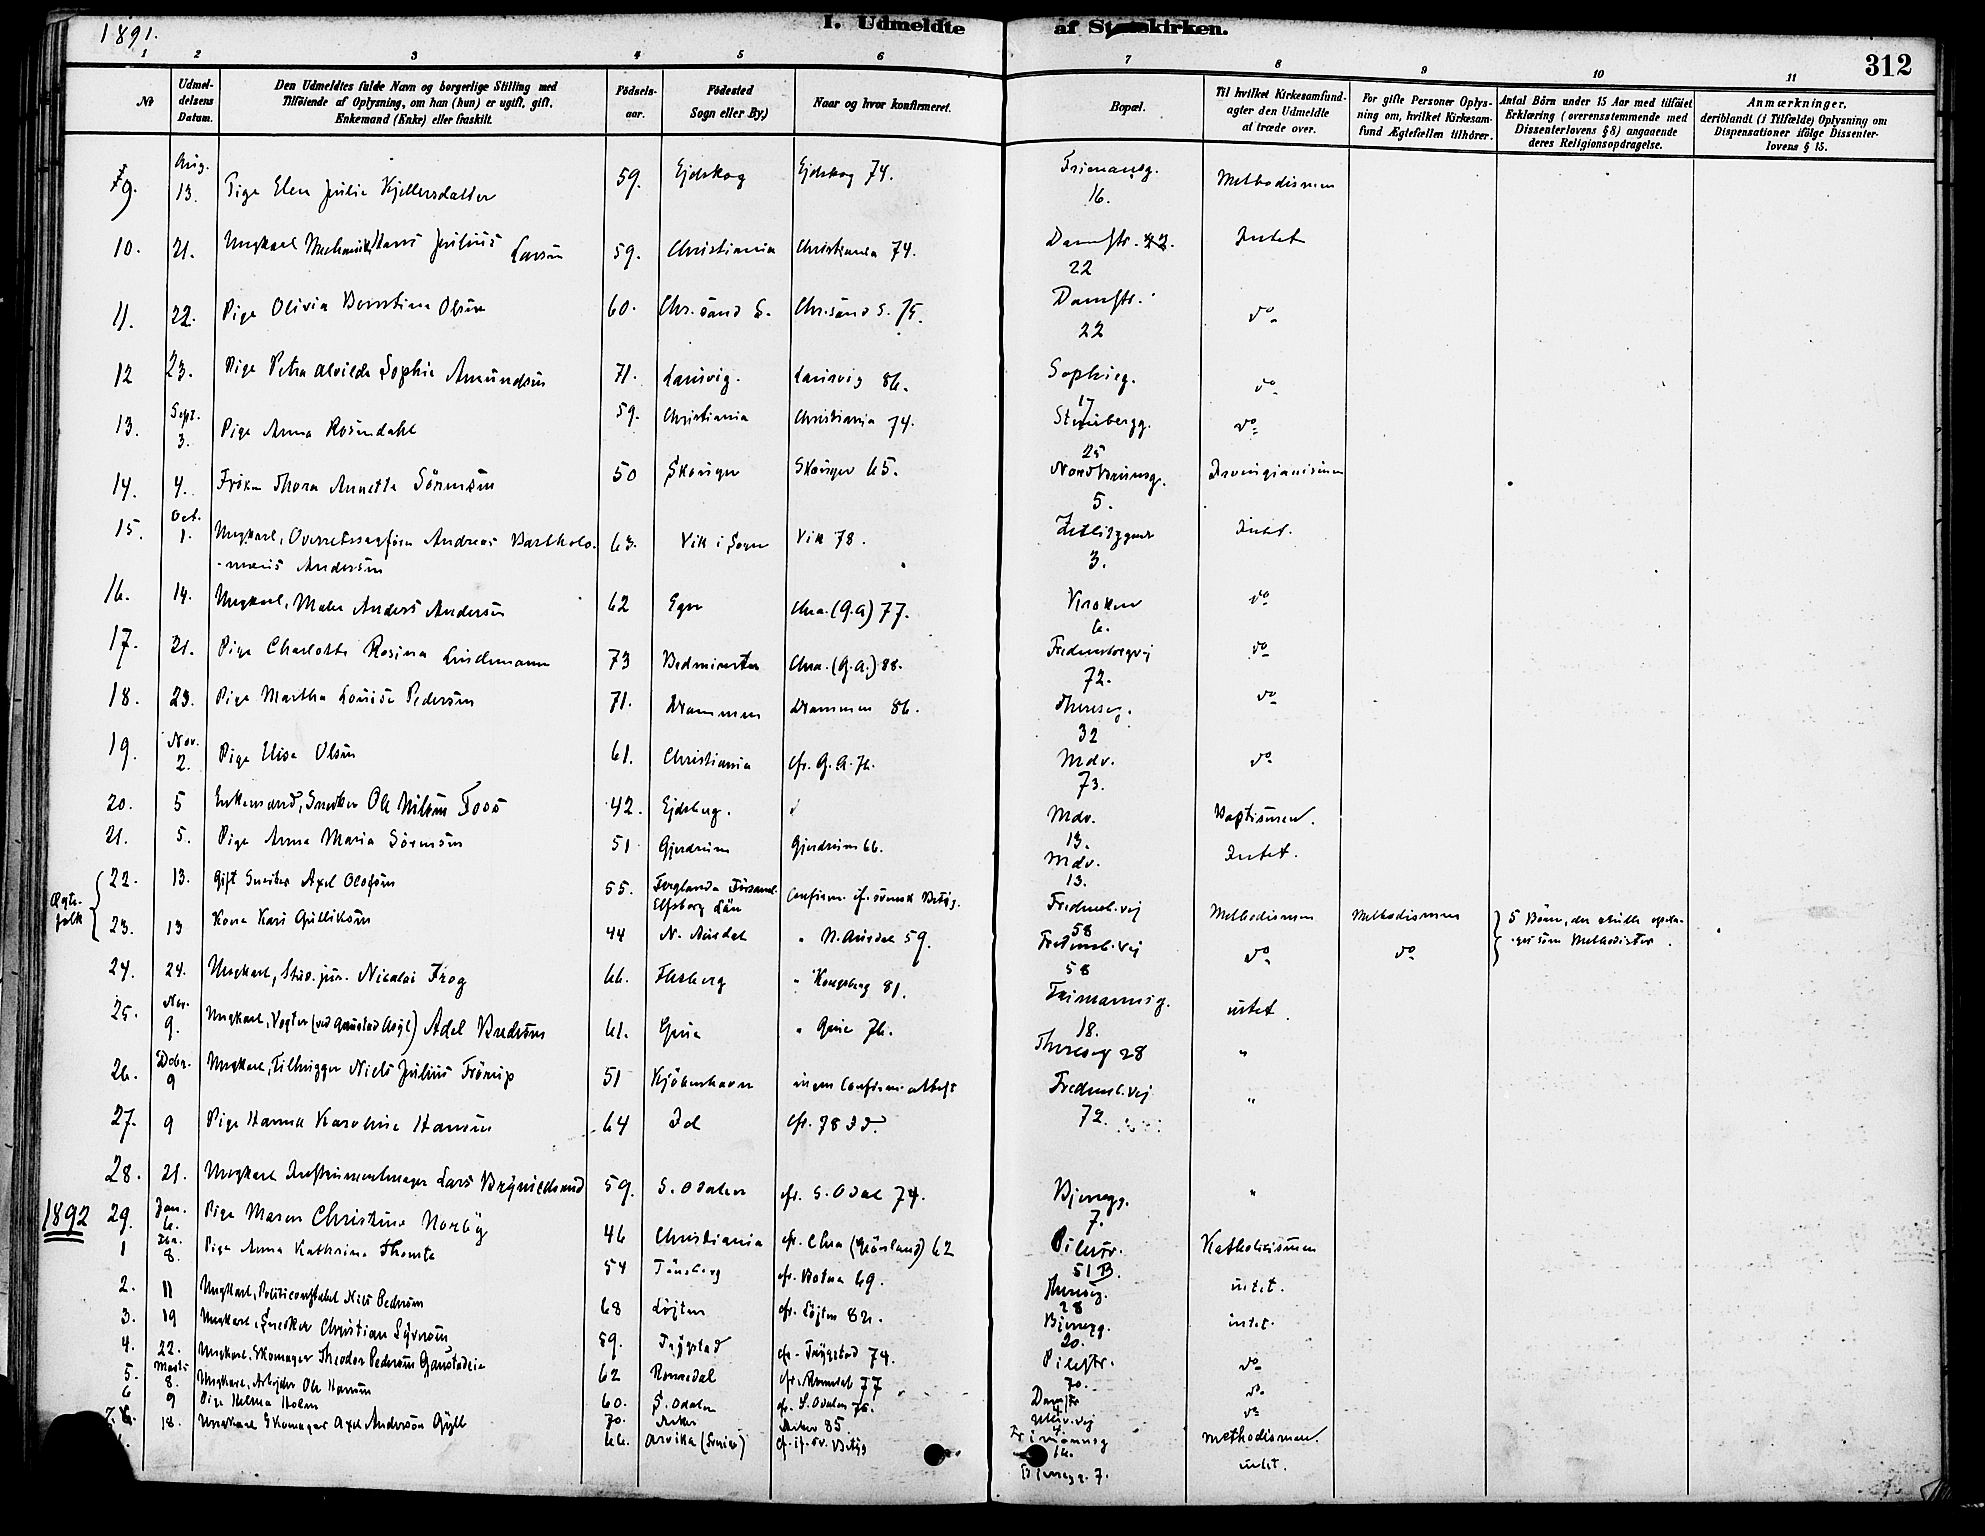 1891.
I. Udmeldte af Statskirken.
312
1 2 3 4 5 6 7 8 9 10 11
No
Udmel-
delsens
Datum.
Den Udmeldtes fulde Navn og borgerlige Stilling med
Tilföiende af Oplysning, om han (hun) er ugift, gift,
Enkemand (Enke) eller fraskilt.
Födsels-
aar.
Födested
Sogn eller By.)
Naar og hvor konfirmeret.
Bopæl.
Til hvilket Kirkesamfund
agter den Udmeldte
at træde over.
For gifte Personer Oplys-
ning om, hvilket Kirkesam-
fund Ægtefællen tilhörer.
Antal Börn under 15 Aar med tilföiet
Erklæring (overensstemmende med
Dissenterlovens § 8) angaaende
deres Religionsopdragelse.
Anmærkninger,
deriblandt (i Tilfælde) Oplysning om
Dispensationer ifölge Dissenter-
lovens § 15.
9. Aug. 13. Pige Elen Julie Kjellersdatter 59. Ejdskog Ejdskog 74. 16. Methodismen
10. 21. Ungkarl Mechanik Hans Julius Larsen 59. Christiania Christiania 74. Damstr. 22 Intet
11. 22. Pige Olivia Olsen 60. Chr.sand S. Chr.sand S. 75. Damstr. 22 do
12 23. Pige Petra Alvilde Sophie Amundsen 71. Laurvig. Laurvig 86. Sophieg. 17 do
13. Sept. 3. Pige Anna Rosendahl 59. Christiania Christiania 74. Stensbergg. 25 do
14. 4. Frøken Thora Annette Sörensen 50 Skouger Skouger 65. 5. Irvingianismen
15. Oct. 1. Ungkarl, Overretssagfører Andreas Bartholo-
-mæus Andersen 63. Vik i Sogn Vik 78. 3. Intet.
16. 14. Ungkarl, Maler Anders Andersen 62 Eger Chra. (G.A) 77. Kroken 6. do
17. 21. Pige Charlotte Rosina Lindemann 73 Chra. (G.A.) 88. Fredensborgvej 72. do
18. 23. Pige Martha Louise Pedersen 71. Drammen Drammen 86. Thereseg. 32 do
19. Nov. 2. Pige Elise Olsen 61. Christiania cfr. G.A. 76. Mdv. 73. do
20. 5 Enkemand, Snedker Ole Nilsen Foss 42. Ejdsberg. Mdv. 13. Baptismen.
21. 5. Pige Anna Maria Sörensen 51 Gjerdrum Gjerdrum 66. Mdv. 13. Intet.
Ægte-
folk
22. 13. Gift Snedker Axel Olofsen 55. Elfsborg Län Confirm. if. svensk Betyg. Fredensb.vej 58 Methodismen Methodismen 5 Börn, der skulle opdra-
ges som Methodister.
23. 13 Kone Kari Gulliksen 44 N. Aurdal " N. Aurdal 59. Fredensb.vej 58 do do
24. 24. Ungkarl, Stud. jur. Nicolai Frog 66. Flesberg " Kongsberg 81. 18. intet.
25. Nov. 9. Ungkarl, Vogter (ved Gaustad Asyl) Adel Bredesen 61. Grue " Grue 76. Thereseg 28 "
26. Debr. 9 Ungkarl, Tilhugger Niels Julius Frörup 51 Kjöbenhavn ingen Confirm.attest Fredensb.vej 72. "
27. 9 Pige Hanna Karoline Hansen 64 Id cfr. 78 Id.
28. 21. Ungkarl Instrumentmager Lars Brynildsrud 59. S. Odalen cfr. S. Odal 74. Bjerregg. 7. "
1892
29. Jan. 6. Pige Maren Christine Norby 46 Christiania cfr. Chra (Grönland) 62 Pilestr. 51 B. Katholicismen
1 8. Pige Anna Kathrine Thomte 54 Tönsberg cfr. Botne 69. Thereseg. 28 intet.
2. 11 Ungkarl, Politiconstabel Nils Pedersen 68 Löjten cfr. Löjten 82. Bjerregg. 20. intet.
3. 19 Ungkarl, Snedker Christian Syversen 59. Trygstad cfr. Trygstad 74. Pilestr. 70. do
4. 22. Ungkarl, Skomager Theodor Pedersen 62 Romedal cfr. Romedal 77 Damstr do
5. Marts 8. Ungkarl, Arbejder Ole Hansen 60. S. Odalen cfr. S. Odalen 76. Ullev.vej 4. do
6 9 Pige Helma Holm 70. Aker Aker 85. 16. Methodismen.
7. 18. Ungkarl Skomager Axel Anderson Gyll 66. Arvika (Sverige) cf. if. sv. Betyg Bjerregg. 7. intet.